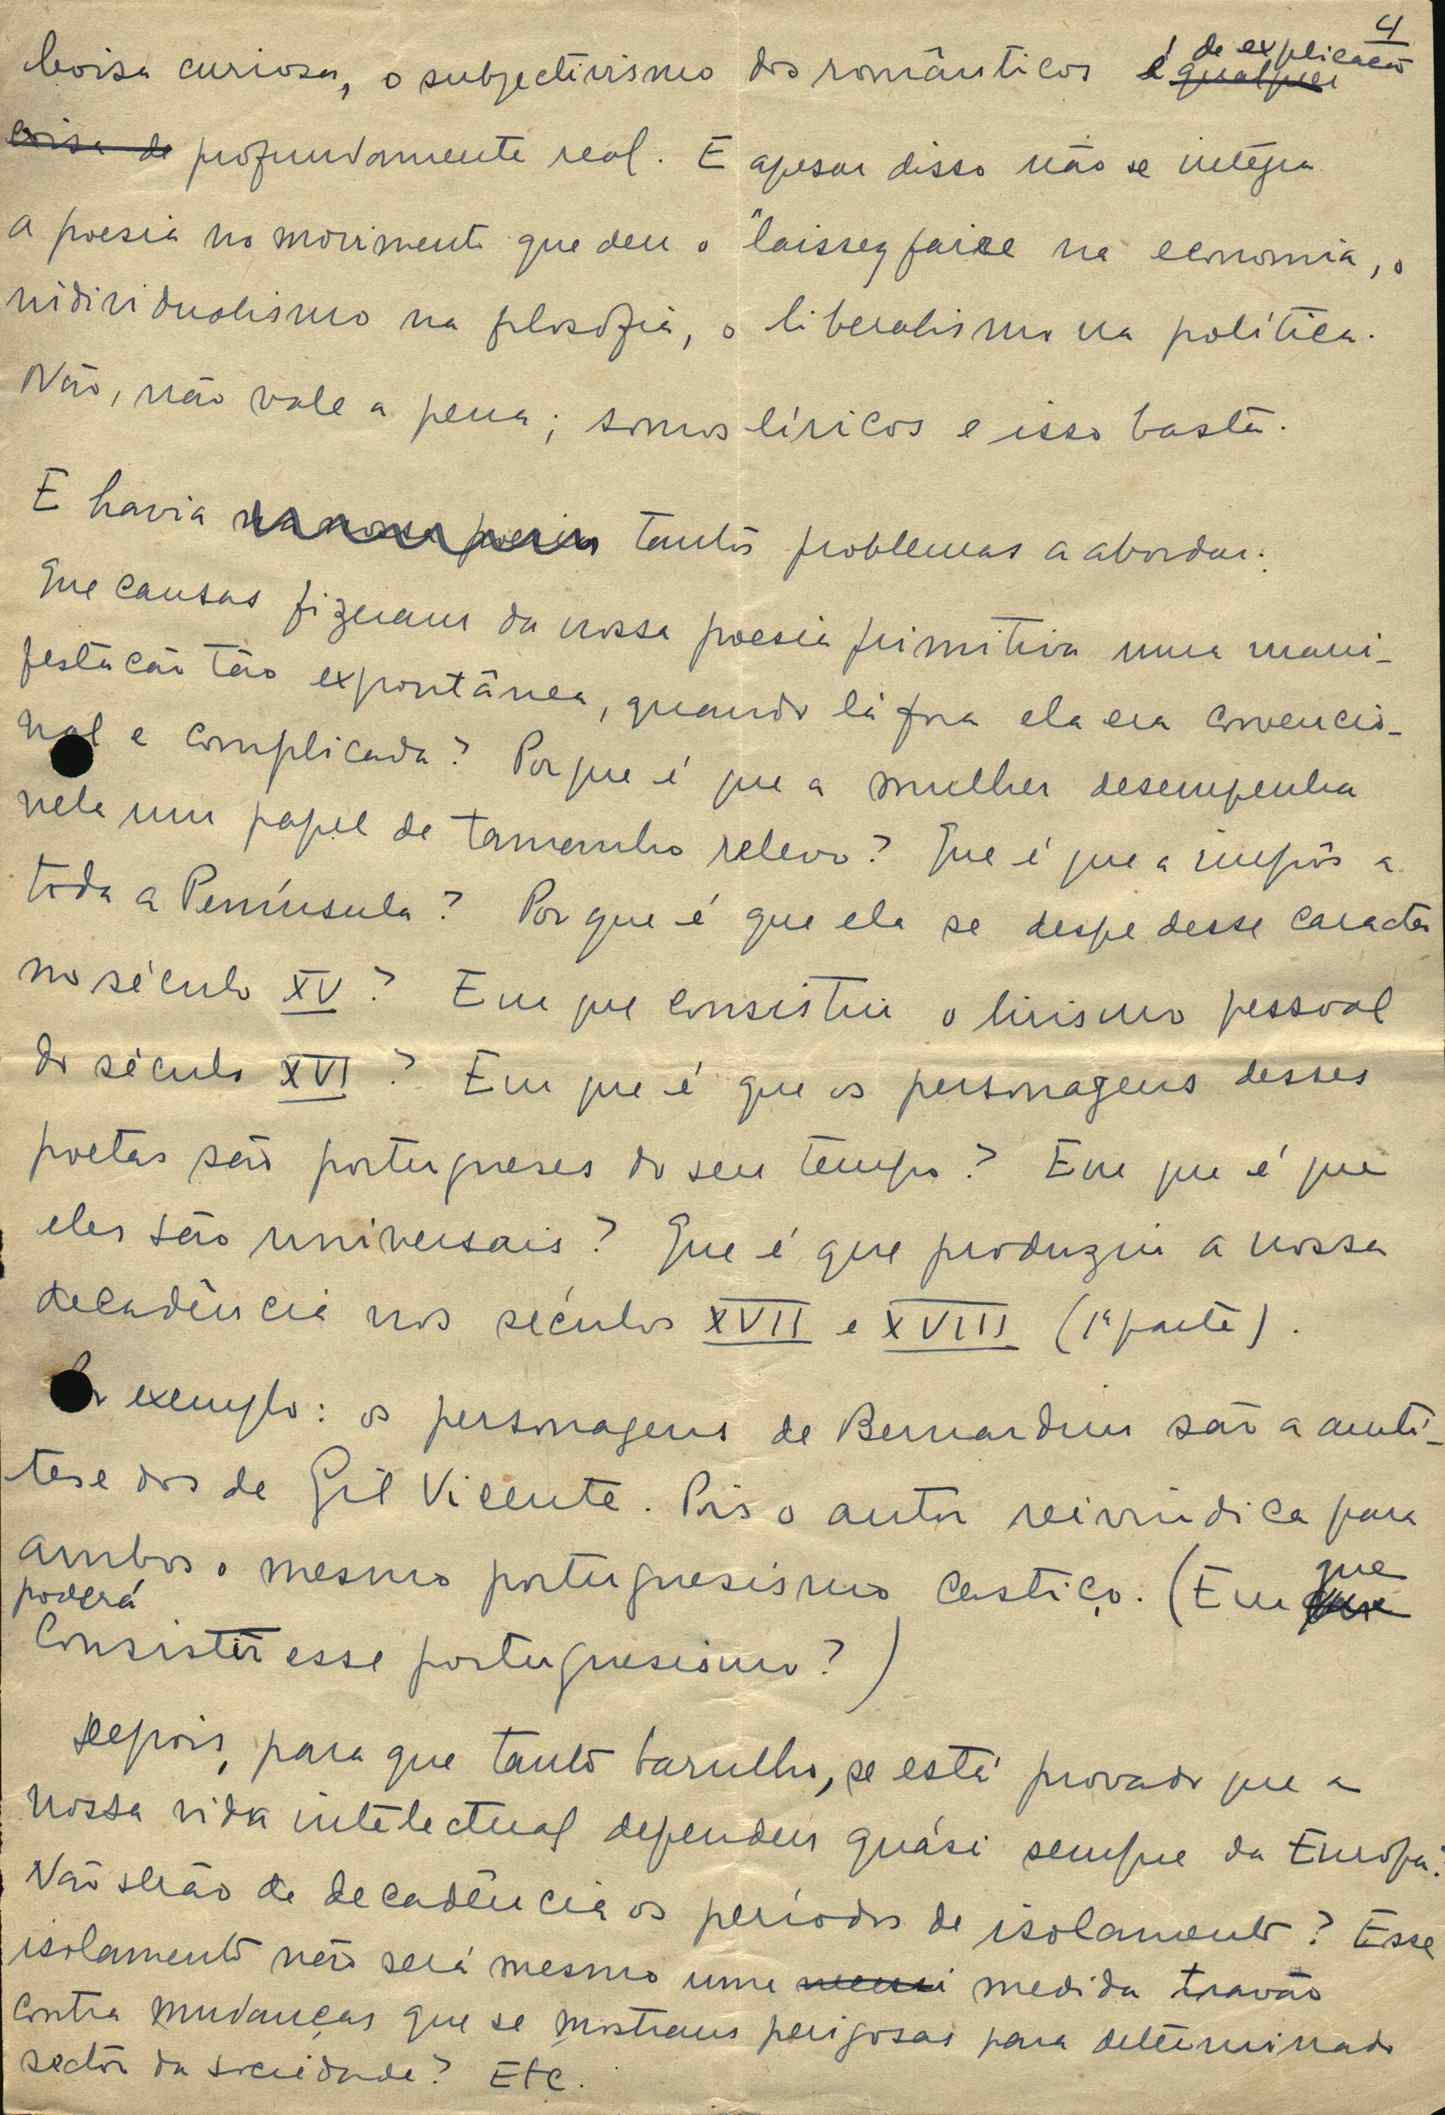 4
Coisa curiosa, o subjectivismo dos românticos é de explicação qualquer
coisa de profundamente real. E apesar disso não se integra
a poesia no movimento que deu o "laissez faire na economia, o
individualismo na filosofia, o liberalismo na política.
Não, não vale a pena; somos líricos e isso basta.
E havia na nossa poesia tantos problemas a abordar:
Que causas fizeram da nossa poesia primitiva uma mani-
festação tão expontânea, quando lá fora ela era convencio-
nal e complicada? Porque é que a mulher desempenha
nela um papel de tamanho relevo? Que é que a impôs a
toda a Península? Porque é que ela se despe desse caracter
no século XV? Em que consistiu o lirismo pessoal
do século XVI? Em que é que os personagens desses
poetas são portugueses do seu tempo? Em que é que
eles são universais? Que é que produziu a nossa
decadência nos séculos XVII e XVIII (1ª parte).
Por exemplo: os personagens de Bernardim são a antí-
tese dos de Gil Vicente. Pois o autor reivindica para
ambos o mesmo portuguesismo castiço. (Em que
poderá
consistir esse portuguesismo?)
Depois, para que tanto barulho, se está provado que a
nossa vida intelectual dependeu quási sempre da Europa?
Não serão de decadência os períodos de isolamento? Esse
isolamento não será mesmo uma medida travão
contra mudanças que se mostram perigosas para determinado
sector da sociedade? Etc.